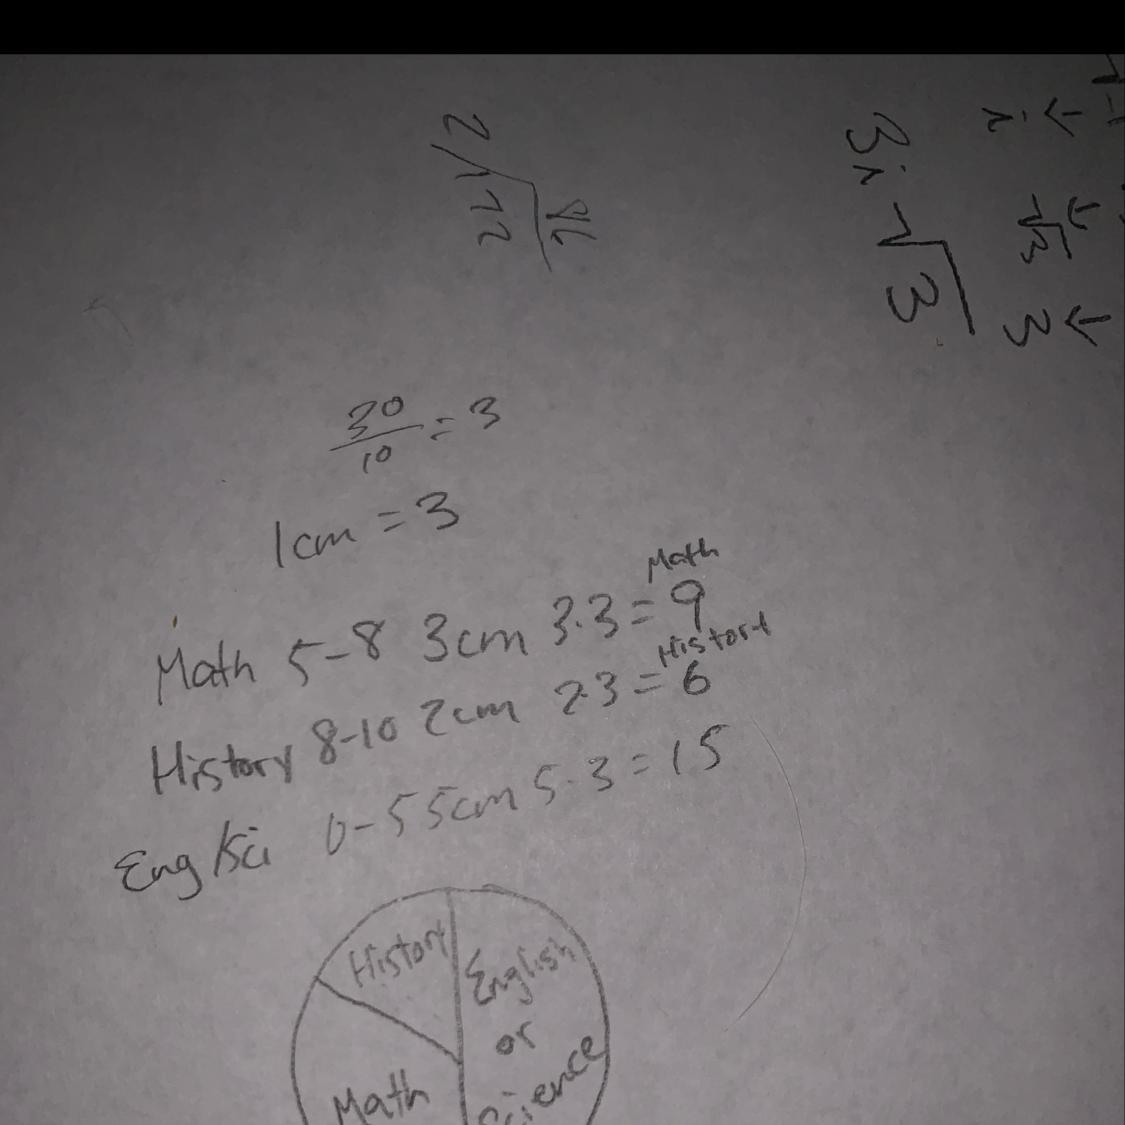 30/10 = 3
1cm = 3
Math 5-8 3cm 3·3 = 9 Math
History 8-10 2cm 2·3 = 6 History
Eng/Sci 0-5 5cm 5·3 = 15
History
English
or
Science
Math
3i√3
i √3 3